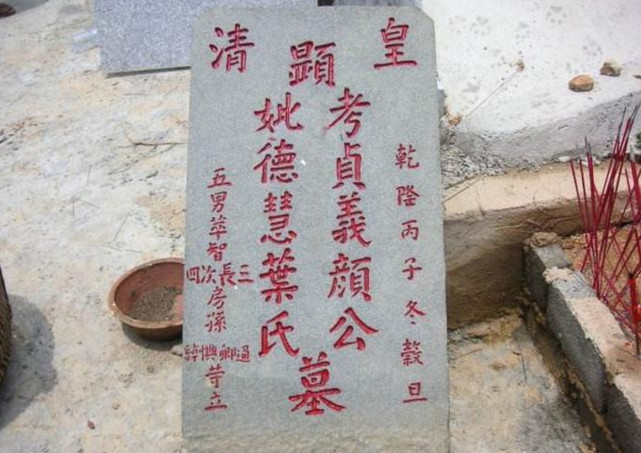 皇清
乾隆丙子冬穀旦
顯
考貞義顏公
妣德慧葉氏
墓
五男萃智
三長次四
房孫
過卿
等立